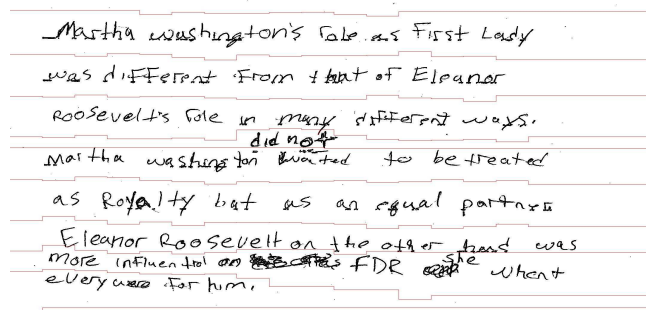 Martha washington's role as First Lady
was different from that of Eleanor
Roosevelt's role in many different ways.
did not
Martha washington wanted to be treated
as Royalty but as an equal partner
Eleanor Roosevelt on the other hand was
more influential on FDR she whent
everywere for him.